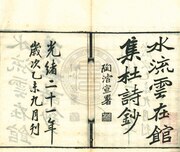 水流雲在館
集杜詩鈔
陶濬宣署
光緒二十一年
歲次乙未九月刊